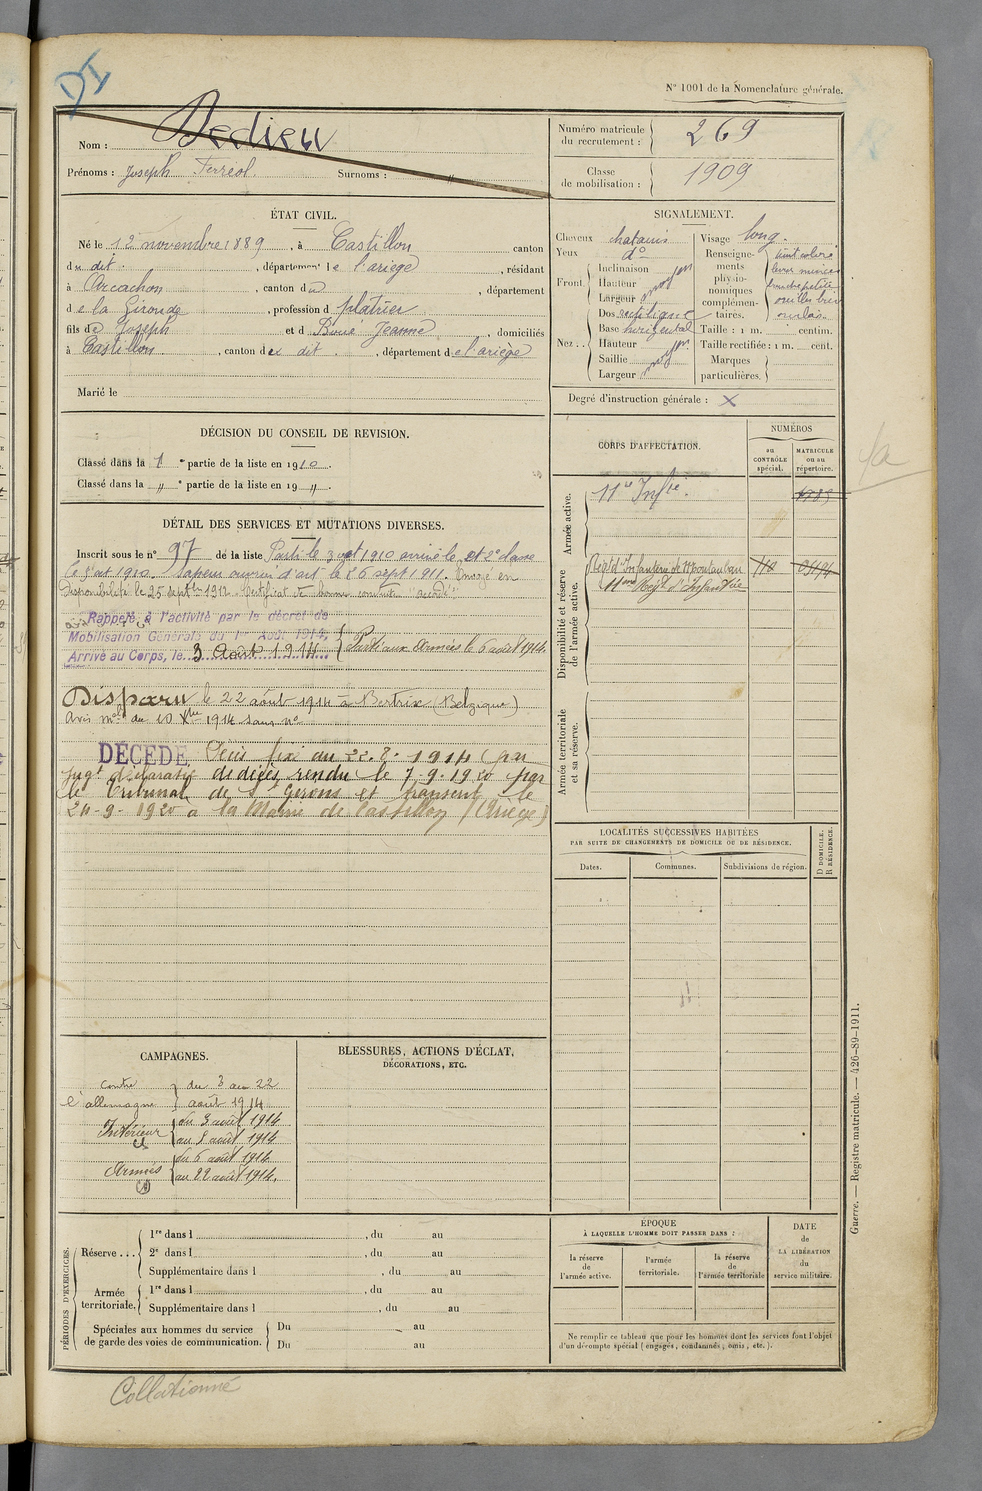 DI
N° 1001 de la Nomenclature générale.
Nom : Dedieu
Prénoms : Joseph Ferréol. Surnoms : "
Numéro matricule du recrutement : 269
Classe de mobilisation : 1909
ÉTAT CIVIL.
Né le 12 novembre 1889, à Castillon canton
du dit, département de l'ariège, résidant
à Arcachon, canton du , département
de la Gironde, profession de plâtrier
fils de Joseph et de Boué Jeanne, domiciliés
à Castillon, canton du dit, département de l'ariège
Marié le
SIGNALEMENT.
Cheveux chatains
Yeux d°
Front
Inclinaison
Hauteur moyen
Largeur
Nez
Dos rectiligne
Base horizontal
Hauteur
Saillie moyen
Largeur
Visage long.
Renseignements physionomiques complémentaires.
teint coloré
lèvres minces
bouche petite
Taille : 1 m. centim.
Taille rectifiée : 1 m. cent.
Marques particulières.
Degré d'instruction générale : X
DÉCISION DU CONSEIL DE REVISION.
Classé dans la 1e partie de la liste en 1910.
Classé dans la " e partie de la liste en 19 ".
DÉTAIL DES SERVICES ET MUTATIONS DIVERSES.
Inscrit sous le n° 97 de la liste Parti le 3 oct 1910 arrivé le et 2e classe
le 3 oct 1910. Sapeur ouvrier d'art le 26 sept 1911. Envoyé en
disponibilité le 25 septbre 1912. Certificat de bonne conduite "accordé"
Rappelé à l'activité par le décret de
Mobilisation Générale du 1er Août 1914,
Arrivé au Corps, le 3 Août 1914 Parti aux Armées le 6 août 1914
Disparu le 22 août 1914 à Bertrix (Belgique)
avis mel du 10 Xbre 1914 sans n°
DÉCÉDÉ Décès fixé au 22.8.1914 (par
jugt déclaratif de décès rendu le 7.9.1920 par
le Tribunal de St Gerons et transcrit le
24-9-1920 à la Mairie de Castillon (Ariège)
CORPS D'AFFECTATION.
NUMÉROS
au CONTRÔLE spécial.
MATRICULE ou au répertoire.
Armée active.
11e Infie.
Disponibilité et réserve de l'armée active.
Régt d'Infanterie de Montauban
11ème Régt d'Infanterie
Armée territoriale et sa réserve.
LOCALITÉS SUCCESSIVES HABITÉES
PAR SUITE DE CHANGEMENTS DE DOMICILE OU DE RÉSIDENCE.
Dates.
Communes.
Subdivisions de région.
D DOMICILE.
R RÉSIDENCE.
CAMPAGNES.
contre l'allemagne du 3 au 22 août 1914
Intérieur du 3 août 1914
au 5 août 1914
Armées du 6 août 1914
au 22 août 1914.
BLESSURES, ACTIONS D'ÉCLAT,
DÉCORATIONS, ETC.
PÉRIODES D'EXERCICES.
Réserve ...
1re dans l , du au
2e dans l , du au
Supplémentaire dans l , du au
Armée territoriale.
1re dans l , du au
Supplémentaire dans l , du au
Spéciales aux hommes du service de garde des voies de communication.
Du au
Du au
ÉPOQUE
À LAQUELLE L'HOMME DOIT PASSER DANS :
la réserve de l'armée active.
l'armée territoriale.
la réserve de l'armée territoriale
DATE de LA LIBÉRATION du service militaire.
Ne remplir ce tableau que pour les hommes dont les services font l'objet
d'un décompte spécial (engagés, condamnés, omis, etc.).
Guerre. — Registre matricule. — 426-89-1911.
Collationné